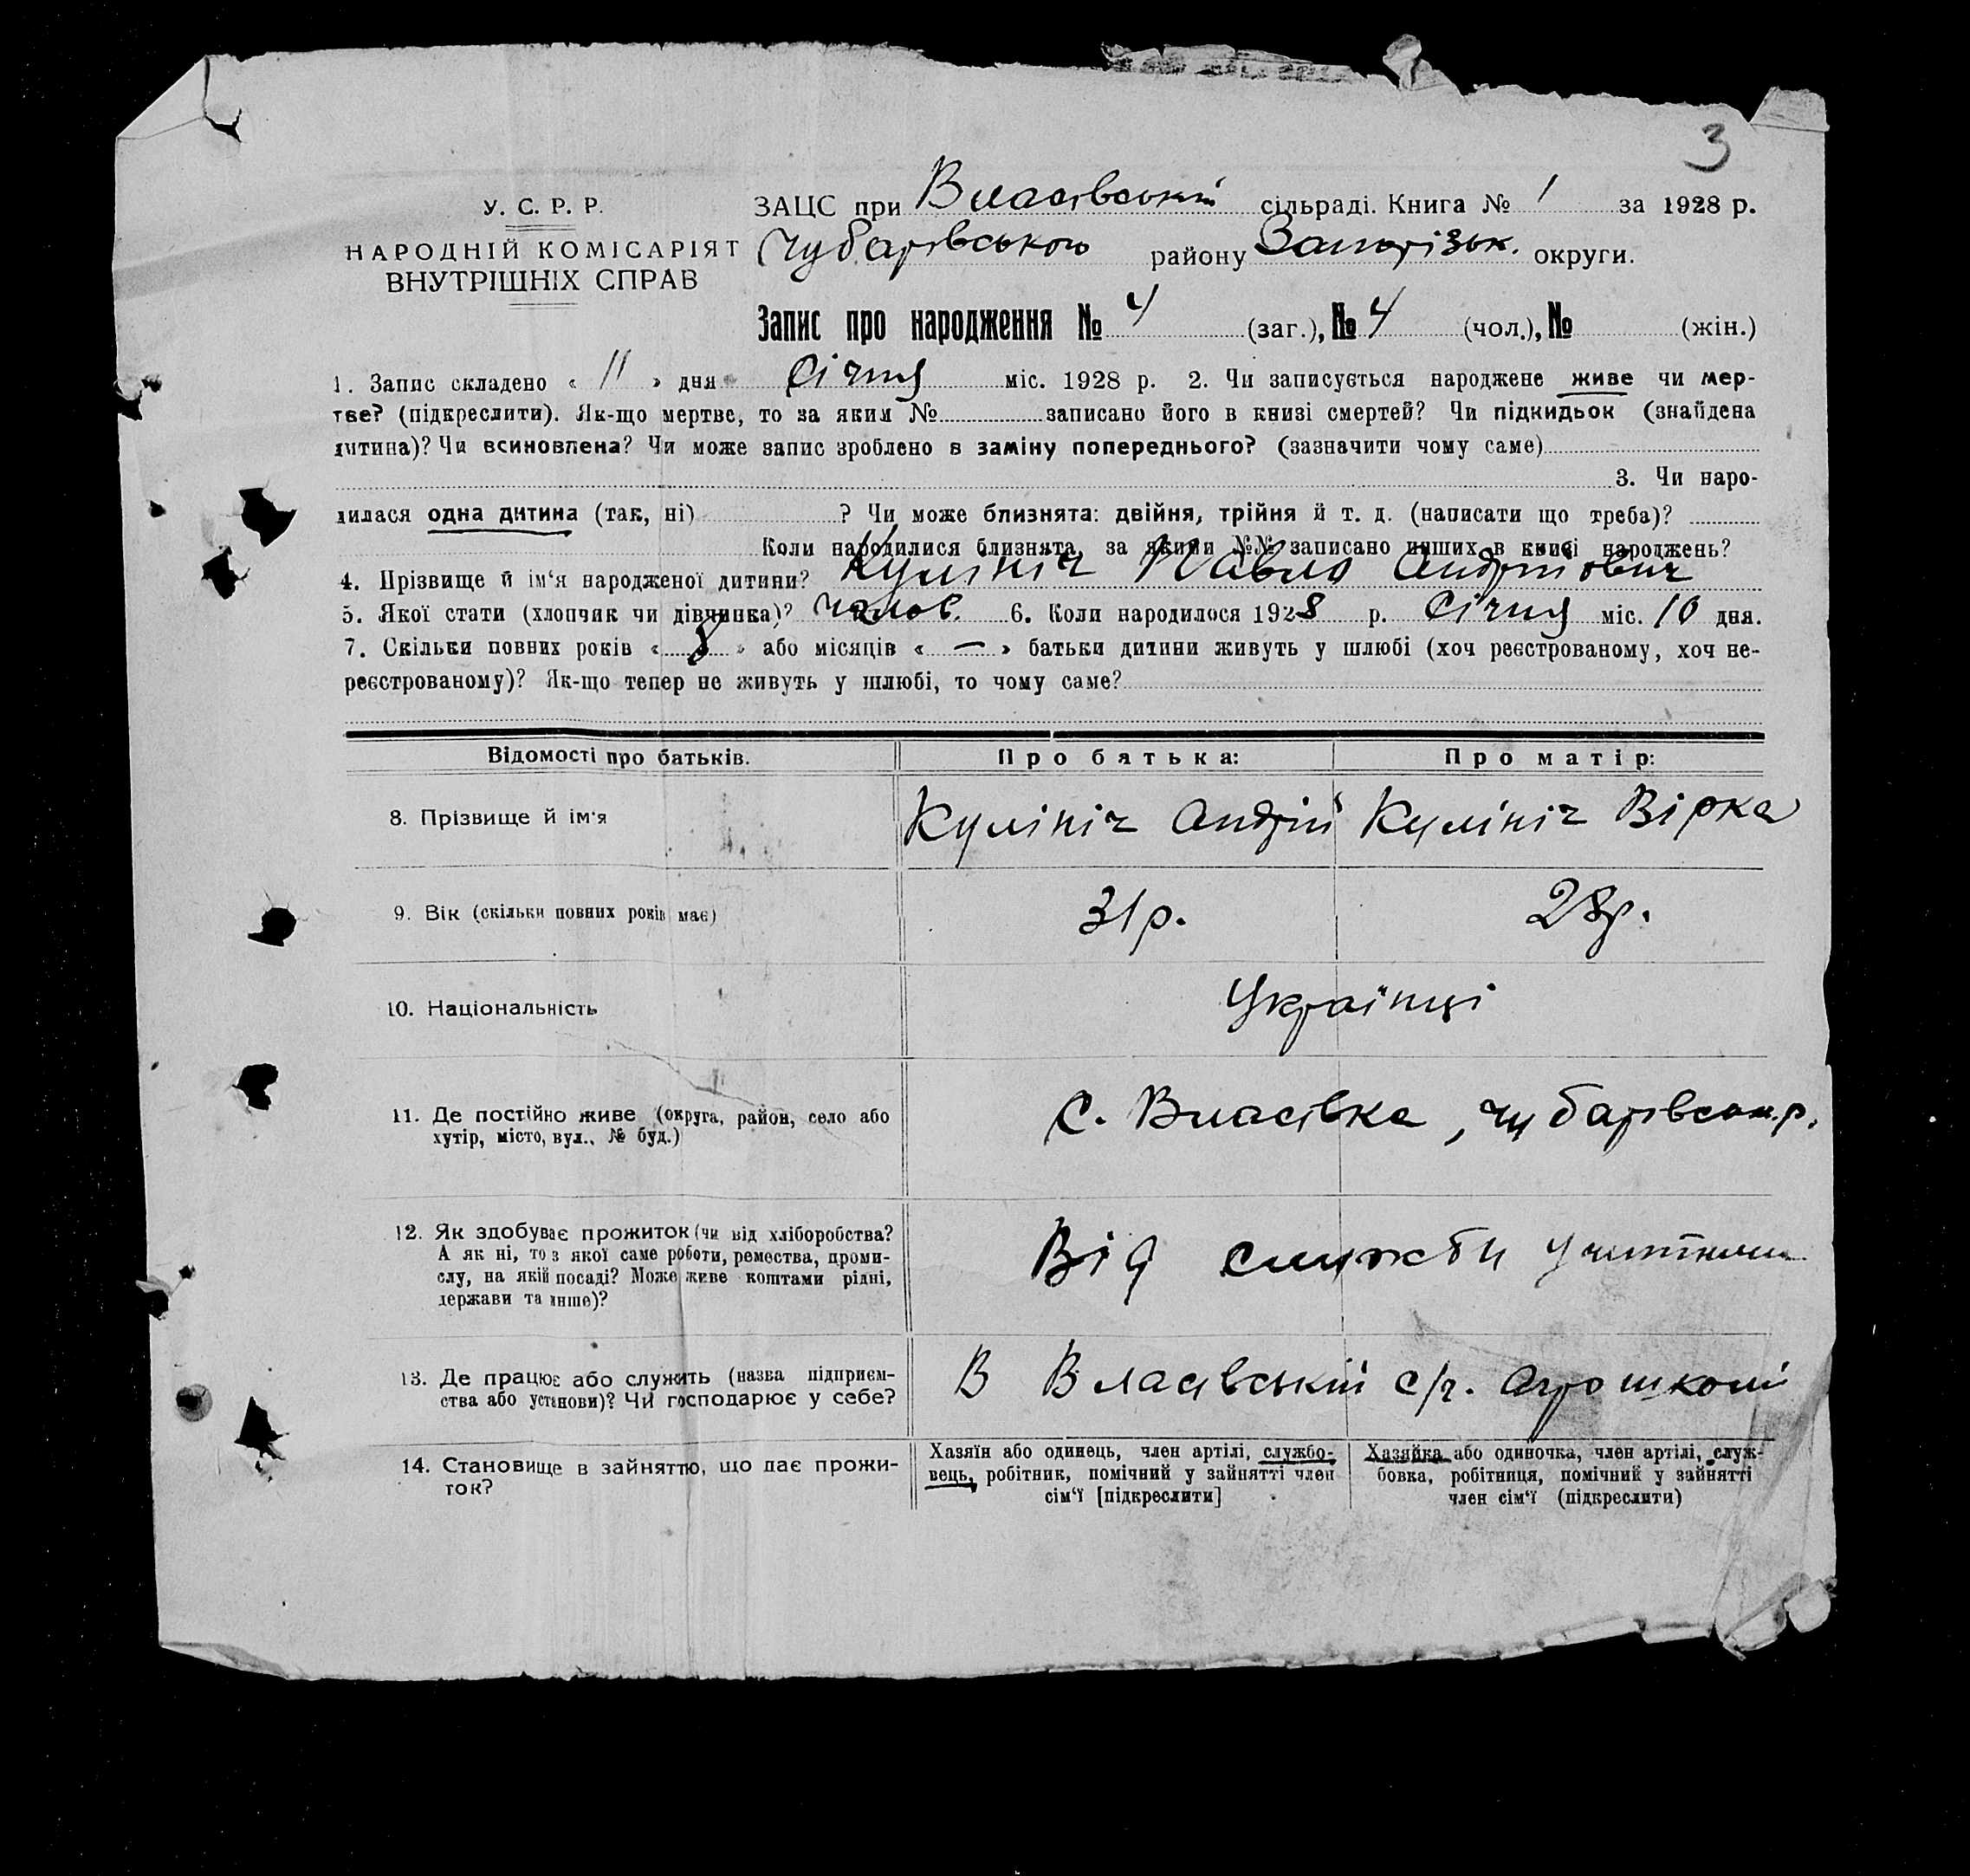 3
У. С. Р. Р.
НАРОДНІЙ КОМІСАРІЯТ
ВНУТРІШНІХ СПРАВ
ЗАЦС при Власівській сільраді. Книга № 1 за 1928 р.
Чубарівського району Запорізьк. округи.
Запис про народження № 4 (заг.), № 4 (чол.), № (жін.)
1. Запис складено « 11 » дня Січня міс. 1928 р. 2. Чи записується народжене живе чи мер-
тве? (підкреслити). Як-що мертве, то за яким № записано його в книзі смертей? Чи підкидьок (знайдена
дитина)? Чи всиновлена? Чи може запис зроблено в заміну попереднього? (зазначити чому саме)
3. Чи наро-
дилася одна дитина (так, ні) ? Чи може близнята: двійня, трійня й т. д. (написати що треба)?
Коли народилися близнята, за якими №№ записано инших в книзі народжень?
4. Прізвище й ім'я народженої дитини? Кулініч Павло Андрійович
5. Якої стати (хлопчик чи дівчинка)? Чолов. 6. Коли народилося 1928 р. Січня міс. 10 дня.
7. Скільки повних років « 8 » або місяців « — » батьки дитини живуть у шлюбі (хоч реєстрованому, хоч не-
реєстрованому)? Як-що тепер не живуть у шлюбі, то чому саме?
Відомості про батьків. Про батька: Про матір:
8. Прізвище й ім'я Кулініч Андрій Кулініч Вірка
9. Вік (скільки повних років має) 31 р. 28 р.
10. Національність Українці
11. Де постійно живе (округа, район, село або
хутір, місто, вул., № буд.)
С. Власівка, Чубарівськ. р.
12. Як здобуває прожиток (чи від хліборобства?
А як ні, то з якої саме роботи, ремества, проми-
слу, на якій посаді? Може живе коштами рідні,
держави та инше)?
Від служби
13. Де працює або служить (назва підприєм-
ства або установи)? Чи господарює у себе?
В Власівській с/г. Агрошколі
14. Становище в зайняттю, що дає прожи-
ток?
Хазяїн або одинець, член артілі, службо-
вець, робітник, помічний у зайнятті член
сім'ї [підкреслити]
Хазяйка або одиночка, член артілі, служ-
бовка, робітниця, помічний у зайнятті
член сім'ї (підкреслити)